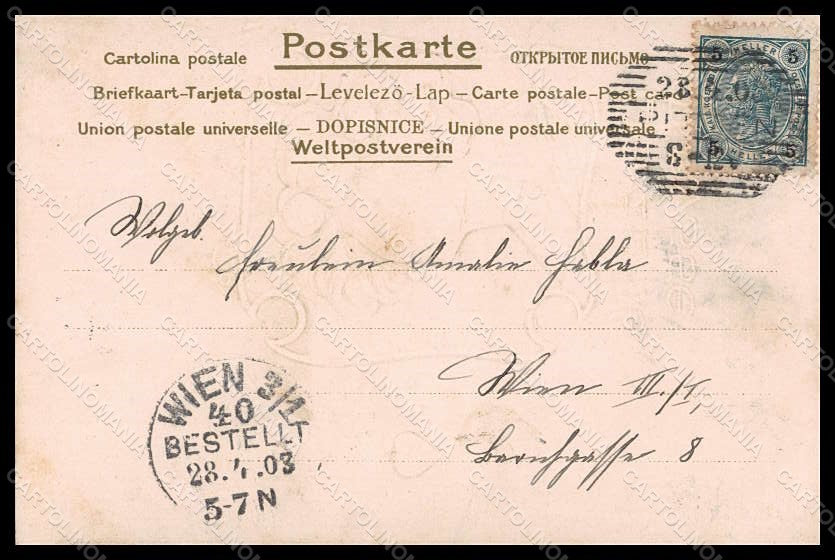 Postkarte
Cartolina postale ОТКРЫТОЕ ПИСЬМО
Briefkaart–Tarjeta postal–Levelező-Lap–Carte postale–Post card
Union postale universelle – DOPISNICE – Unione postale universale
Weltpostverein
5 HELLER 5
28
8
5 HELLER 5
Wolgeb.
Fräulein Amalie Habla
Wien III./1,
8
WIEN 3/1
40
BESTELLT
28.4.03
5-7N
CARTOLINOMANIA